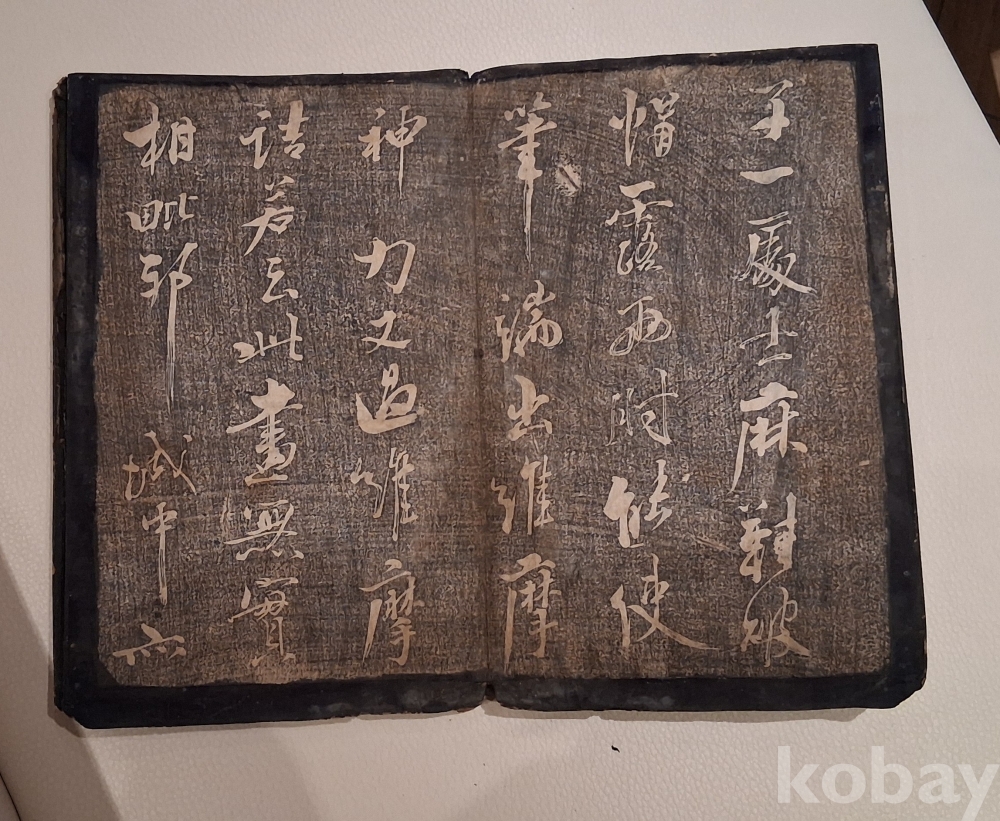 子一處士麻鞋破
帽露兩肘能使
筆端出維摩
神力又過維摩
詰若云此畫無實
相毗耶城中亦
kobay